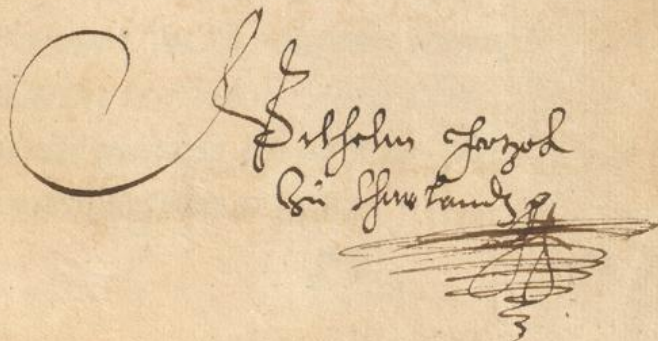 Wilhelm hertzok
zu Churlandt